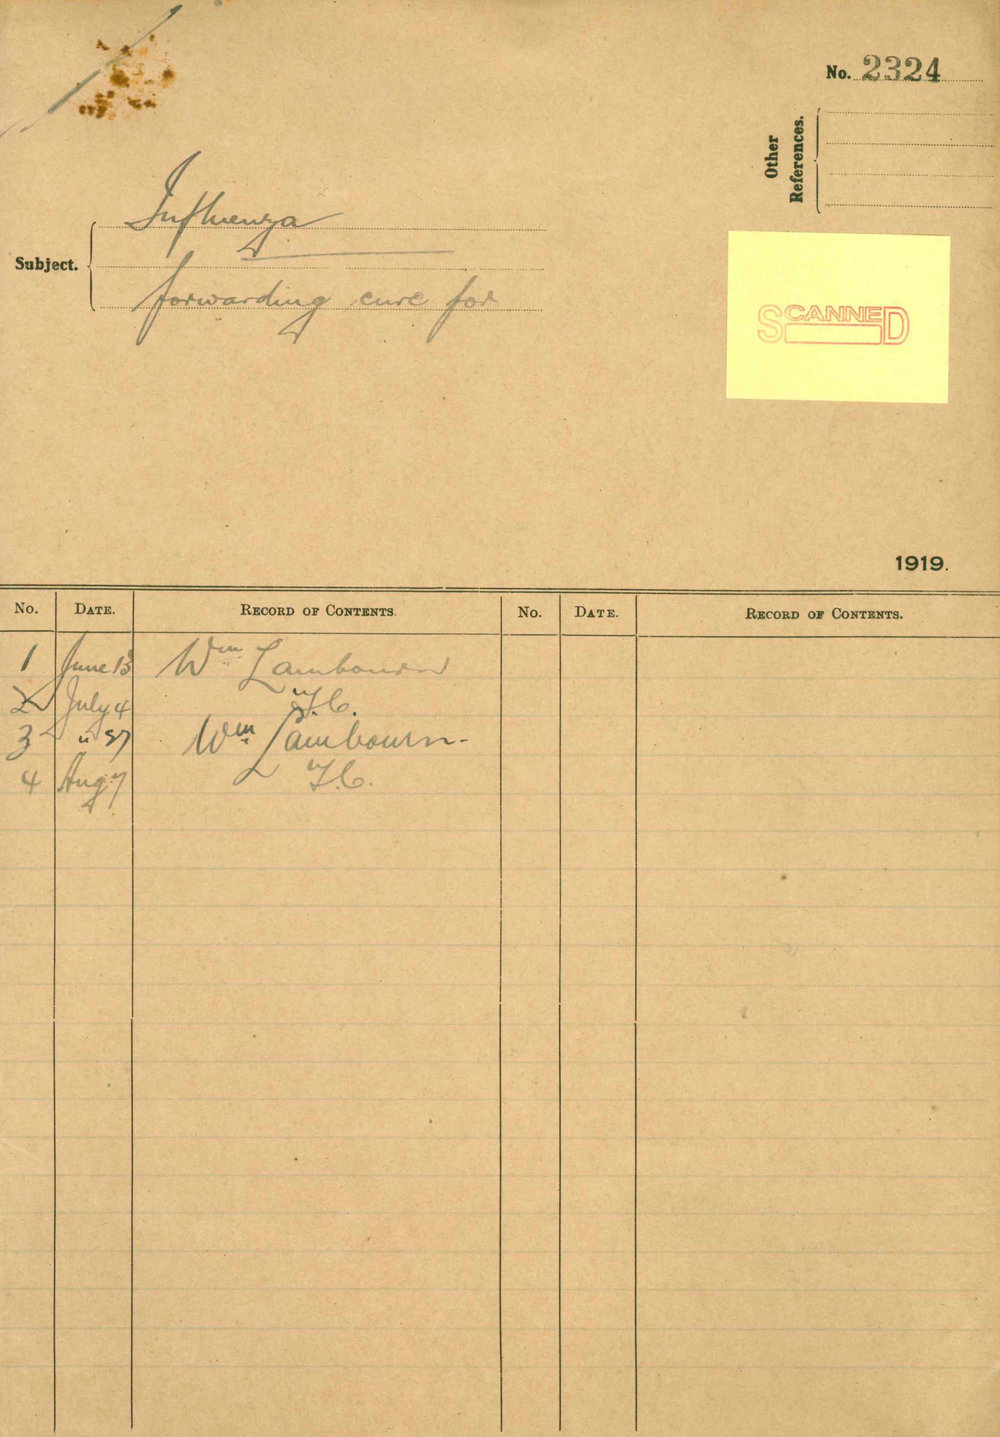 No. 2324
Other References.
Subject.
Influenza
forwarding cure for
SCANNED
1919.
No. DATE. RECORD OF CONTENTS. No. DATE. RECORD OF CONTENTS.
1 June 13 Wm Lambourn
2 July 4 T.C.
3 " Wm Lambourn.
4 Aug 7 T.C.